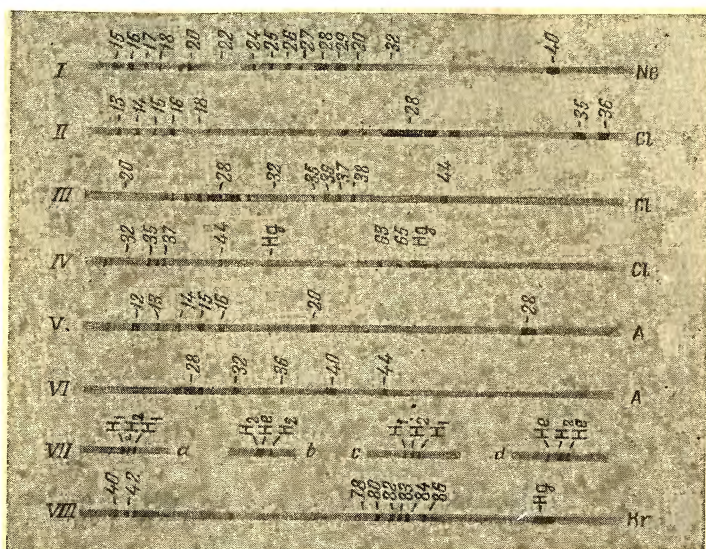 -15 -16 -17 -18 -20 -22 -24 -25 -26 -27 -28 -29 -30 -32 -40
I Ne
-13 -14 -15 -16 -18 -28 -35 -36
II Cl
-20 -28 -32 -35 -36 -37 -38 44
III Cl
-32 -35 -37 -44 -Hg 63 65 Hg
IV Cl
-12 -13 -14 -15 -16 -20 -28
V. A
-28 -32 -36 -40 -44
VI A
H₁ H₂ H₁ H₂ He H₂ H₁ H₂ H₁ He H₂ He
VII a b c d
-40 -42 -78 -80 -82 -83 -84 -86 -Hg
VIII Kr